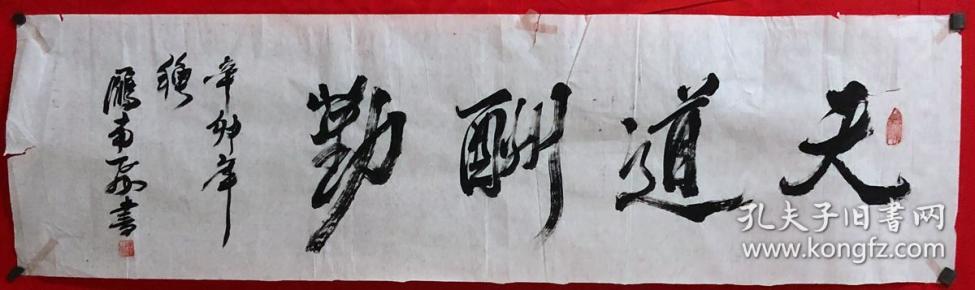 天道酬勤
辛卯年
穐
雁南
书
孔夫子旧书网
www.kongfz.com